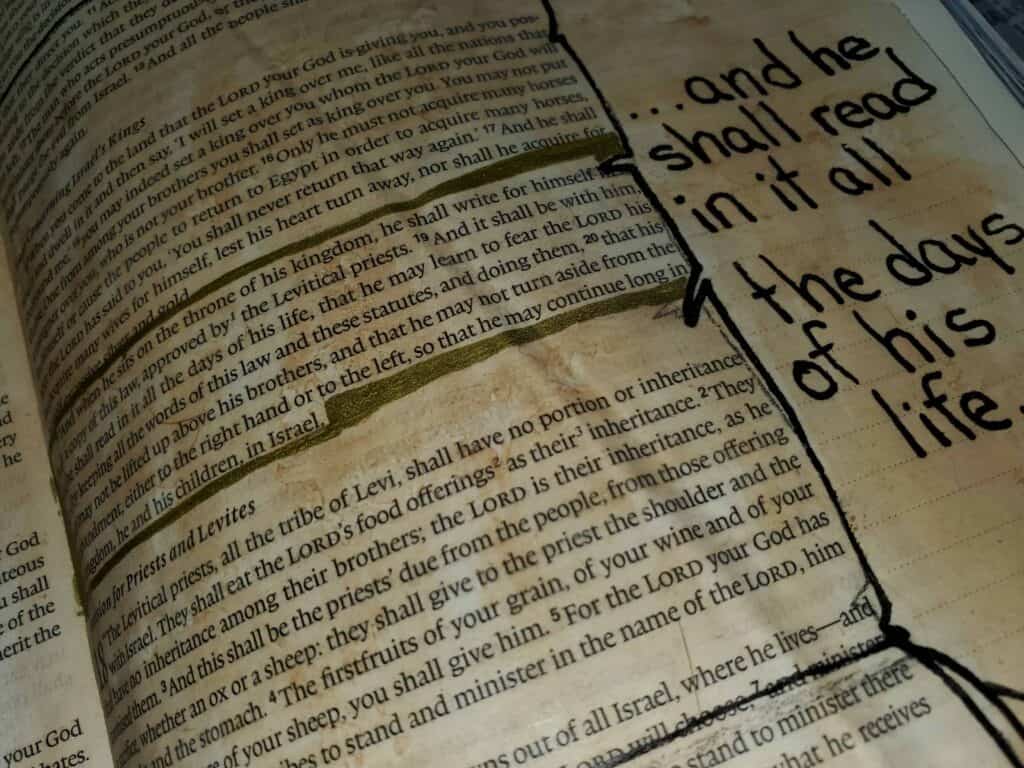 you. 11 Acc
decision which they
the verdict that they
man who acts presumptuously
before the LORD your God, or the
from Israel. 13 And all the people shall
again.
Israel's Kings
you come to the land that the LORD your God is giving you, and you pos-
and dwell in it and then say, 'I will set a king over me, like all the nations that
me,' 15 you may indeed set a king over you whom the LORD your God will
from among your brothers you shall set as king over you. You may not put
over you, who is not your brother. 16 Only he must not acquire many horses
or cause the people to return to Egypt in order to acquire many horses,
the LORD has said to you, 'You shall never return that way again.' 17 And he shall
acquire many wives for himself, lest his heart turn away, nor shall he acquire for
silver and gold.
when he sits on the throne of his kingdom, he shall write for himself
copy of this law, approved by1 the Levitical priests. 19 And it shall be with him,
he shall read in it all the days of his life, that he may learn to fear the LORD his
keeping all the words of this law and these statutes, and doing them, 20 that his
may not be lifted up above his brothers, and that he may not turn aside from the
either to the right hand or to the left, so that he may continue long in
he and his children, in Israel.
for Priests and Levites
"The Levitical priests, all the tribe of Levi, shall have no portion or inheritance
with Israel. They shall eat the LORD's food offerings2 as their3 inheritance. 2 They
have no inheritance among their brothers; the LORD is their inheritance, as he
them. 3 And this shall be the priests' due from the people, from those offering
whether an ox or a sheep: they shall give to the priest the shoulder and the
and the stomach. 4 The firstfruits of your grain, of your wine and of your
of your sheep, you shall give him. 5 For the LORD your God has
to stand and minister in the name of the LORD, him
out of all Israel, where he lives—and
LORD will choose, 7 and minister
stand to minister there
what he receives
...and he
shall read
in it all
the days
of his
life.
he
God
you shall
of the
your God
hates.